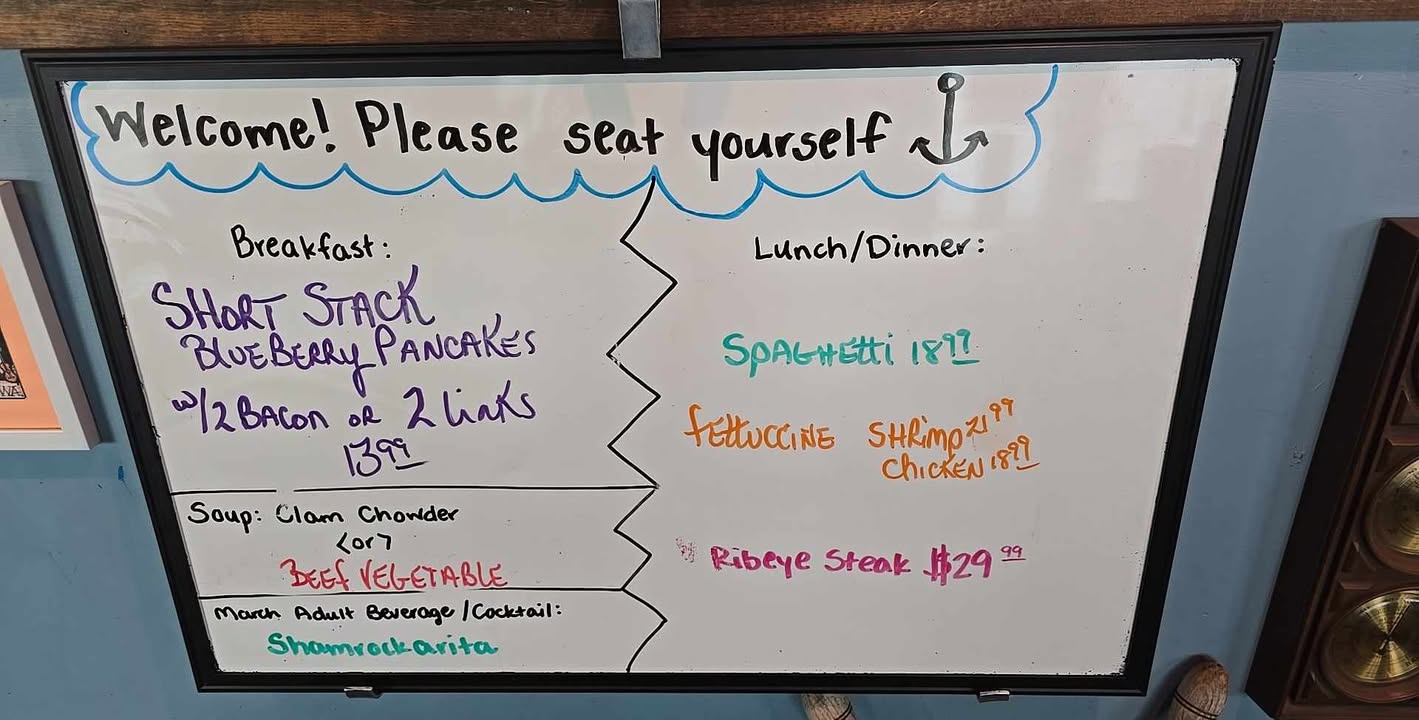 Welcome! Please seat yourself
Breakfast:
SHORT STACK
BLUEBERRY PANCAKES
w/2 BACON OR 2 Links
13.99
Soup: Clam Chowder
<or>
BEEF VEGETABLE
March Adult Beverage/Cocktail:
Shamrockarita
Lunch/Dinner:
SPAGHEtti 18.99
fEttUCCINE SHRimp 21.99
CHICKEN 18.99
Ribeye Steak $29.99
WA